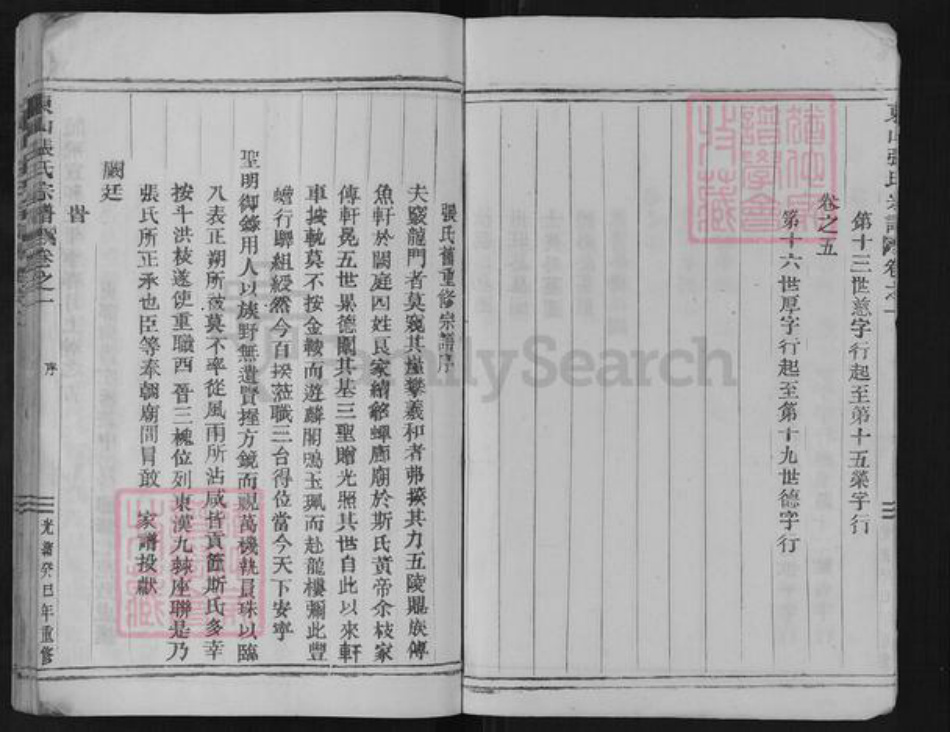 第十三世慈字行起至第十五榮字行
卷之五
第十六世厚字行起至第十九世德字行
張氏舊重修宗譜序
夫窺龍門者莫窺其崖攀羲和者弗揆其力五陵鼎族傳
魚軒於閫庭四姓良家續貂蟬廊廟於斯氏黃帝余枝家
傳軒冕五世累德闡其基三聖贈光照其世自此以來軒
車接軌莫不按金鞍而遊麟閣鳴玉珮而赴龍樓彌此豐
蟾行聯組綬然今百揆蒞職三台得位當今天下安寧
聖明御籙用人以族野無遺賢握方鏡而視萬機執員珠以臨
八表正朔所被莫不率從風雨所沾咸皆貢篚斯氏多幸
按斗洪枝遂使重職西晉三槐位列東漢九棘座聯是乃
張氏所正承也臣等奉朝廟間冐敢 家譜投獻
闕廷
旹
東山張氏宗譜 卷之一
序
光緒癸巳年重修
FamilySearch